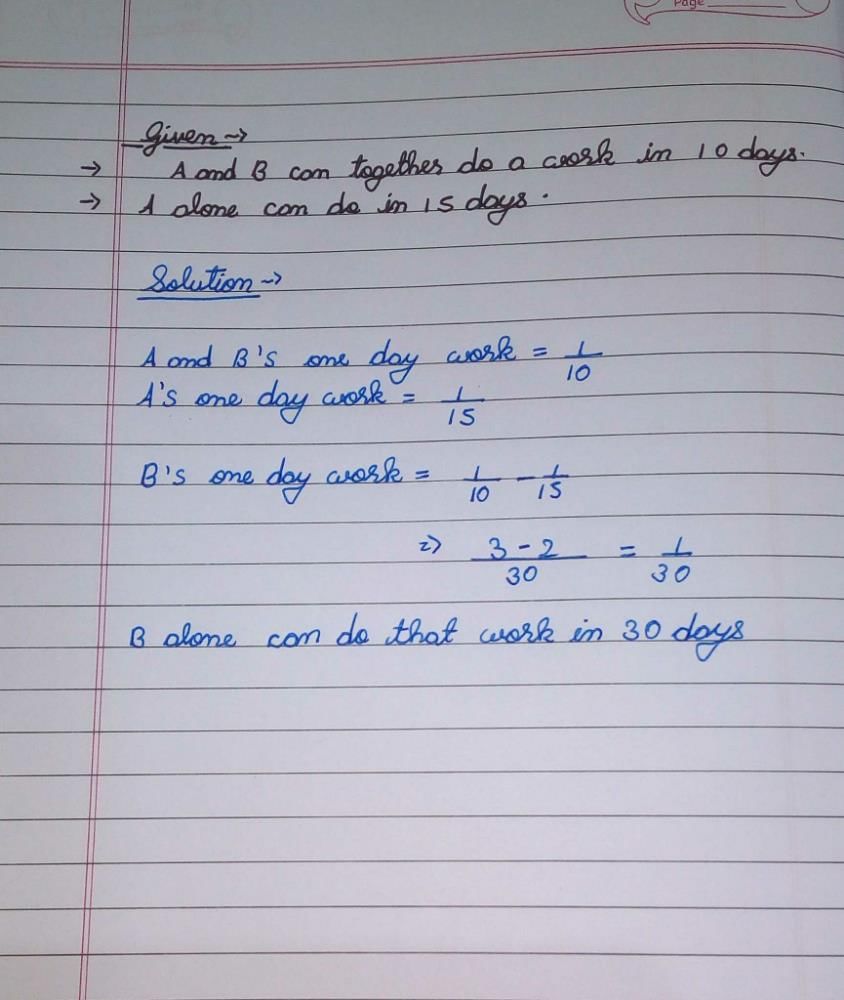 Page
Given →
→ A and B can together do a work in 10 days.
→ A alone can do in 15 days.
Solution →
A and B's one day work = 1/10
A's one day work = 1/15
B's one day work = 1/10 - 1/15
=> 3 - 2/30 = 1/30
B alone can do that work in 30 days